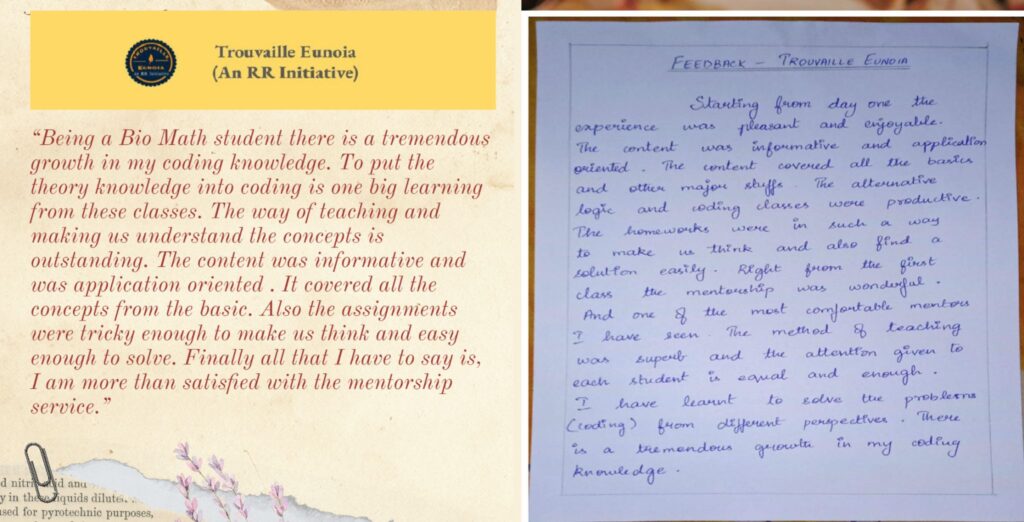 TROUVAILLE
EUNOIA
An RR Initiative
Trouvaille Eunoia
(An RR Initiative)
“Being a Bio Math student there is a tremendous
growth in my coding knowledge. To put the
theory knowledge into coding is one big learning
from these classes. The way of teaching and
making us understand the concepts is
outstanding. The content was informative and
was application oriented . It covered all the
concepts from the basic. Also the assignments
were tricky enough to make us think and easy
enough to solve. Finally all that I have to say is,
I am more than satisfied with the mentorship
service.”
d nitric acid and
y in these liquids dilute.
used for pyrotechnic purposes,
FEEDBACK – TROUVAILLE EUNOIA
Starting from day one the
experience was pleasant and enjoyable.
The content was informative and application
oriented . The content covered all the basics
and other major stuffs . The alternative
logic and coding classes were productive .
The homeworks were in such a way
to make us think and also find a
solution easily . Right from the first
class the mentorship was wonderful .
And one of the most comfortable mentors
I have seen . The method of teaching
was superb and the attention given to
each student is equal and enough .
I have learnt to solve the problems
(coding) from different perspectives . There
is a tremendous growth in my coding
knowledge .